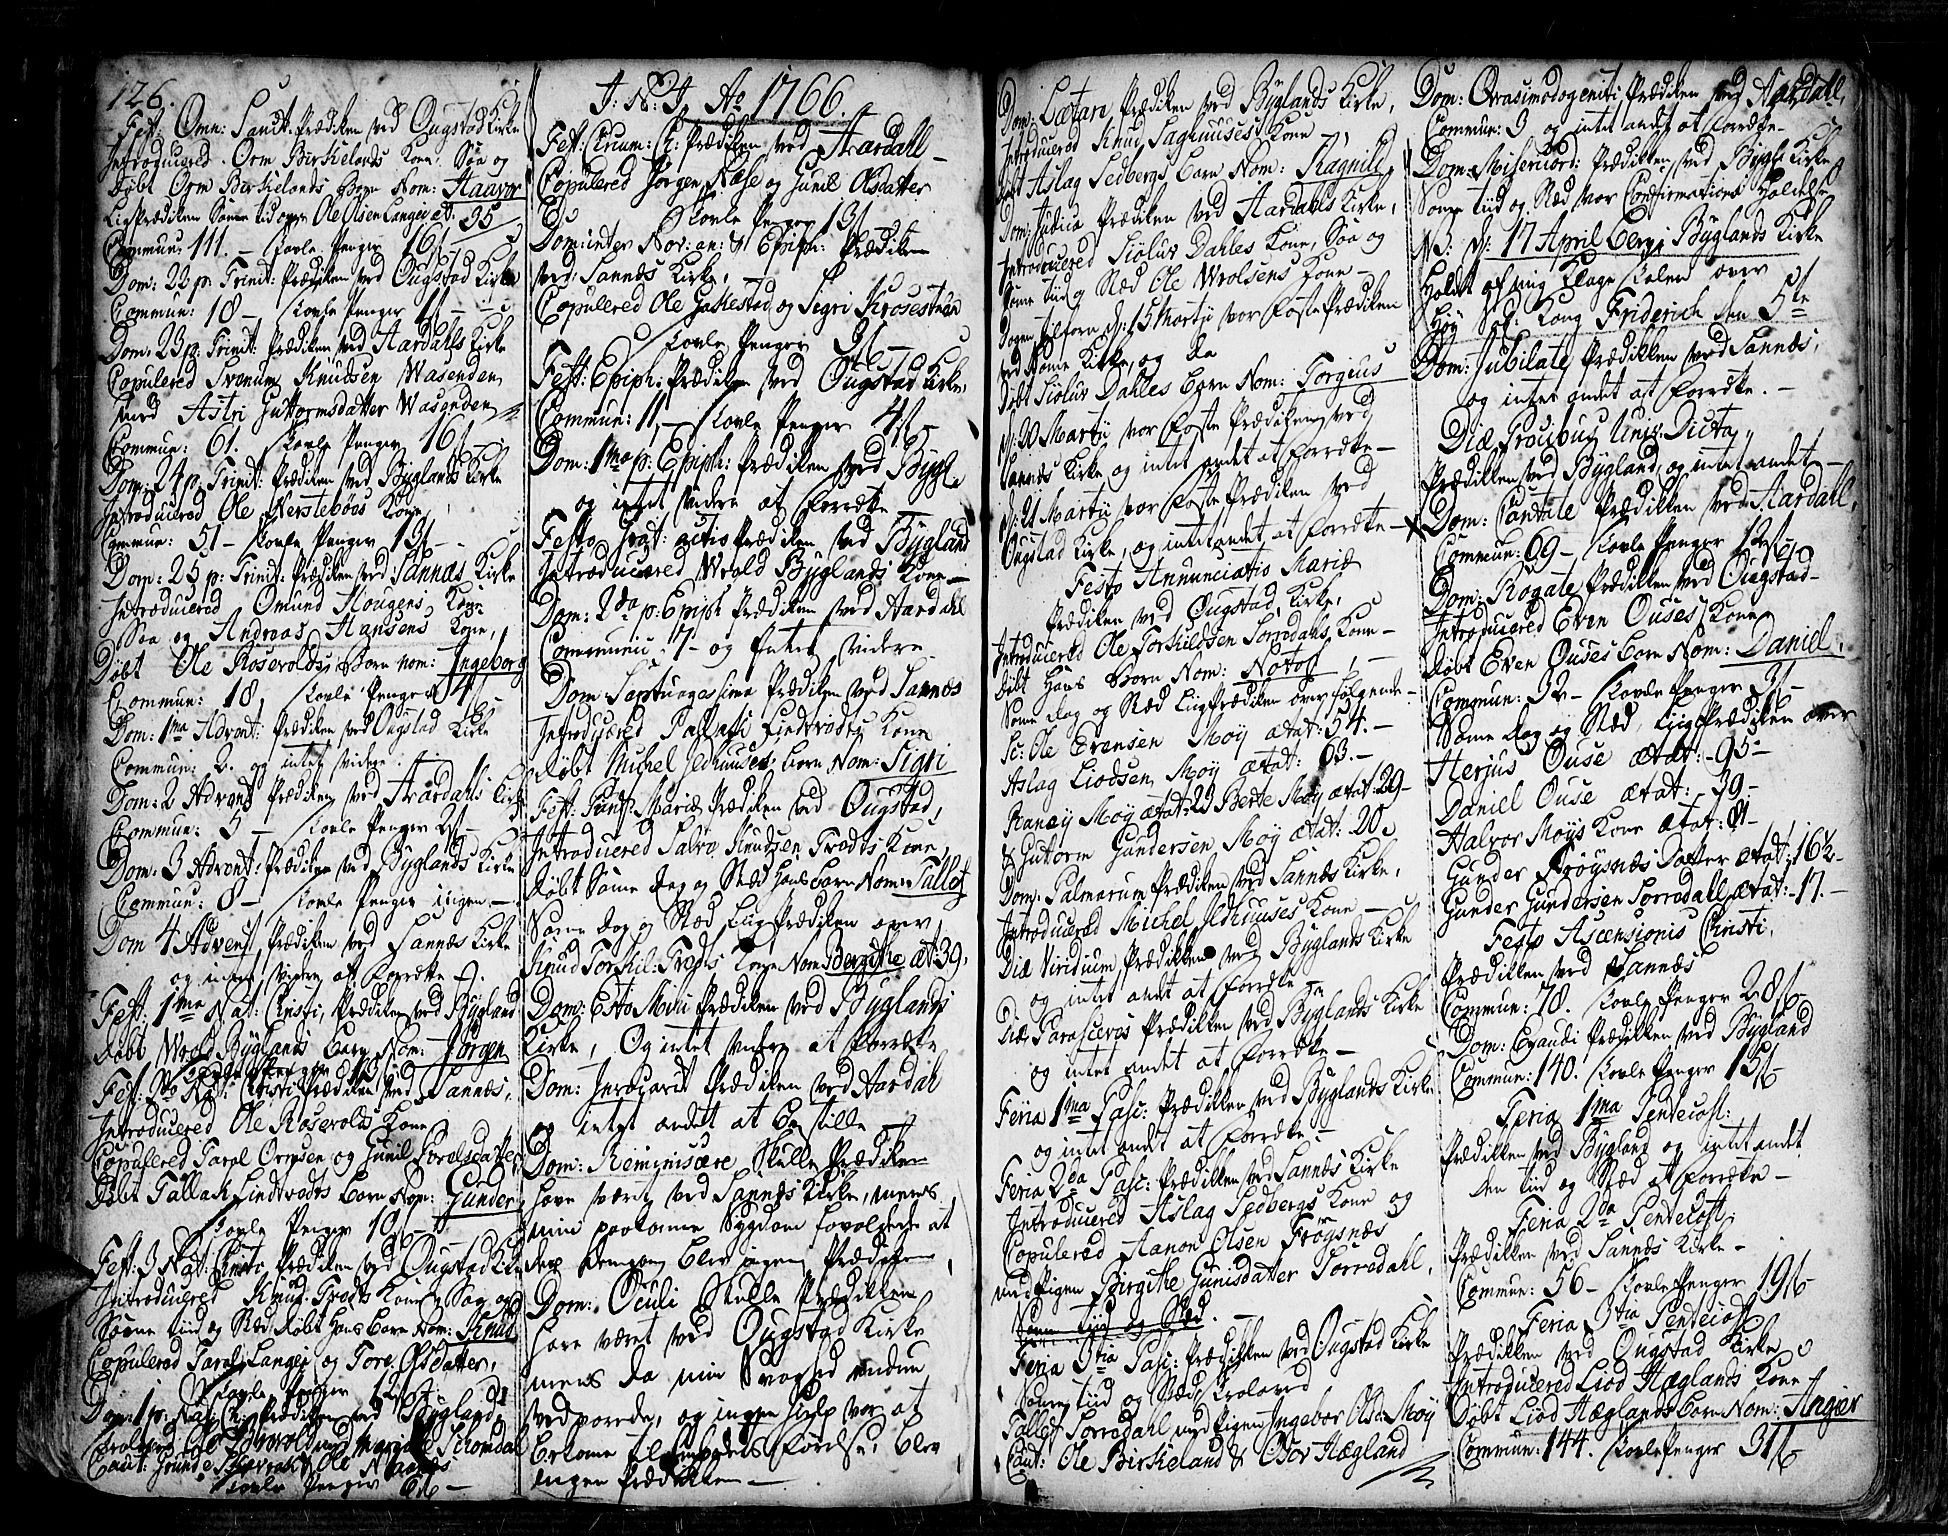 126.
Fest: Omn: Sanct: Prædiken ved Ougstad Kirke
Introducered Orm Birkelands Kone. Saa og
døbt Orm Birkelands Barn Nom: Haavor
Ligprædiken Samme tid over Ole Olsen Langej æt. 35
Commun: 111. – Tavle Penger 16ß
Dom: 22 p: Trinit: Prædiken ved Ougstad Kirke
Commun: 18 – Tavle Penger
Dom: 23 p: Trinit: Prædiken ved Aardahls Kirke
Copulered Svenum Knudsen Wasenden
med Astri Guttormsdatter Wasenden
Commun: 61. Tavle Penger 16ß
Dom: 24 p: Trinit: Prædiken ved Byglands Kirke
Introducered Ole Nerstebøes Kone
Commun: 51 – Tavle Penger 13ß –
Dom: 25 p: Trinit: Prædiken ved Sannæs Kirke
Introducered Omund Hougens Kone
Saa og Andreas Hansens Kone,
Døbt Ole Rosevolds Barn nom: Ingeborg
Commun: 18, Tavle Penger
Dom: 1ma Advent: Prædiken ved Ougstad Kirke
Commun: 2. og intet videre.
Dom: 2 Advent Prædiken ved Aardahls Kirke
Commun: 5 – Tavle Penger 2ß –
Dom: 3 Advent: Prædiken ved Byglands Kirke
Commun: 8 – Tavle Penger ingen –
Dom 4 Advent Prædiken ved Sannæs Kirke
og intet videre at forrette
Fest: 1ma Nat: Christi, Prædiken ved Bygland
døbt Wrold Byglands Barn Nom: Jørgen
Fest: 2do Nat: Christi Prædiken ved Sannæs,
Introducered Ole Rosevolds Kone
Copulered Tarol Ormsen og Gunil Torolsdatter
Døbt Tallach Lindtvedts Barn Nom: Gunder
Tavle Penger 10ß –
Fest: 3 Nat: Christo, Prædiken ved Ougstad Kirke
Introducered Knud Trods Kone, Saa og
Samme tiid og Sted døbt Hans Barn Nom: Knud
Copulered Tarol Langej og Tore Olsdatter,
Tavle Penger
Dom: 1 p: Nat: Prædiken ved Bygland,
Tavle Penger
J: N: J: Ao 1766
Fest: Circum: C: Prædiken ved Aardall –
Copulered Jørgen Næse og Gunil Olsdatter
Tavle Penger 13ß
Dom: inter Nov: an: & Epiph: Prædiken
ved Sannæs Kirke,
Copulered Ole Gakestad og Sigri
Tavle Penger 3ß –
Fest: Epiph: Prædiken ved Ougstad Kirke,
Commun: 11, – Tavle Penger 4ß –
Dom: 1ma p: Epiph: Prædiken ved Bygl.
og intet videre at forrette
Festo Prædiken ved Bygland
Introducered Wrold Byglands Kone –
Dom: 2da p: Epiph Prædiken ved Aardahl
Communic: 7 – og Intet videre
Dom Septuagesima Prædiken ved Sannæs
Introducered Kone
døbt Michel Jldhuuses Barn Nom: Sigri
Fest: Purif: Mariæ Prædiken ved Ougstad,
Introducered Knudsen Trods Kone,
døbt Samme dag og Sted Hans barn Nom: Tallof
Samme dag og Sted Liigprædiken over
Knud Torkil: Trods Kone Nom Bergithe æt: 39,
Dom: Esto Mihi Prædiken ved Byglands
Kirke, Og intet videre at forrette
Dom: Invocavit Prædiken ved Aardahl
og intet andet at bestille –
Dom: Reminiscere Skulle Prædiken
have været ved Sannæs Kirke, mens
min paakomne Sygdom forvoldede at
den gang blev ingen Prædiken
Dom: Oculi Skulle Prædiken
have været ved Ougstad Kirke
mens da min Svaghed endnu
vedvarede, og ingen hielp var at
bekomme til Embedets Førelse, blev
ingen Prædiken –
Dom: Lætare Prædiken ved Byglands Kirke,
Introducered Knud Saghuuses Kone –
døbt Aslag Sedbergs barn Nom: Ragnild
Dom: Judica Prædiken ved Aardahls Kirke,
Introducered Siolur Dahles Kone, Saa og
Samme tiid og Sted Ole Wrolsens Kone –
Dagen tilforn d: 15 Martij var Faste Prædiken
ved Samme Kirke, og da
døbt Siolur Dahles Barn Nom: Torgius
d: 20 Martij var Faste Prædiken ved
Sannæs Kirke og intet andet at forrette –
d: 21 Martij var Faste Prædiken ved
Ougstad Kirke, og intet andet at forrette –
Festo Annunciatio Mariæ
Prædiken ved Ougstad Kirke,
Introducered Ole Torkildsen Torredahls Kone –
døbt Hans Barn Nom:
Samme dag og Sted Liigprædiken over følgende –
Sc: Ole Evensen Moij ætat: 54. –
Aslag Liodsen Moij ætat: 63. –
Ranej Moij ætat: 23 Berte Moij ætat: 29 –
& Gutorm Gundersen Moij ætat: 20.
Dom: Palmarum Prædiken ved Sannæs Kirke,
Introducered Michel Jldhuuses Kone –
Die Viridium Prædiken ved Byglands Kirke
og intet andet at forrette
Die Parasceves Prædikken ved Byglands Kirke
og intet andet at forrette –
Feria 1ma Pasc: Prædikken ved Byglands Kirke
og intet andet at forrette –
Feria 2da Pasc: Prædikken ved Sannæs Kirke
Introducered Aslag Sedbergs Kone og
Copulered Aanon Olsen Frøgsnæs
med Pigen Birgithe Gunisdatter Torredahl,
Samme tiid og Sted.
Feria 3tia Pasc: Prædikken ved Ougstad Kirke
Samme tiid og Sted, troloved
Tallof Torredahl med Pigen Ingebor Olsd: Moij
Caut: Ole Birkeland & Osov Hægland
Dom: Qvasimodogeniti Prædiken ved Aardall,
Commun: 3 og intet andet at forrette –
Dom: Misericord: Prædikken ved Bygl: Kirke
Samme tiid og Sted var Confirmations Holdelse
NB: d: 17 April blev i Byglands Kirke
Holdt af mig Klage Talen over
Høy Sal: Kong Friderich den 5te
Dom: Jubilate Prædikken ved Sannæs,
og intet andet at forrette. –
Diæ
Prædikken ved Bygland og intet andet –
Dom: Cantate Prædikken ved Aardahl,
Commun: 69 – Tavle Penger 12ß –
Dom: Rogate Prædikken ved Ougstad –
Introducered Even Ouses Kone
døbt Even Ouses barn Nom: Daniel,
Commun: 32 – Tavle Penger 3ß –
Samme dag og Sted, Liigprædiken over
Herjus Ouse ætat: 95 –
Daniel Ouse ætat: 39 –
Halvor Moijs Kone ætat:
Gunder Frøysnæs Datter ætat: 16½ –
Gunder Gundersen Torredall ætat: 17. –
Festo Ascensionis Christi,
Prædikken ved Sannæs
Commun: 78. Tavle Penger 28ß –
Dom: Exaudi Prædikken ved Bygland
Commun: 140. Tavle Penger 15ß
Feria 1ma Pentecost:
Prædikken ved Bygland og intet andet
den tiid og Sted at forrette –
Feria 2da Pentecost:
Prædikken ved Sannæs Kirke –
Commun: 56 – Tavle Penger 19ß –
Feria 3tia Pentecost
Prædikken ved Ougstad Kirke
Introducered Liod Hæglands Kone –
døbt Liod Hæglands Barn Nom: Angier
Commun: 144. Tavle Penger 31ß